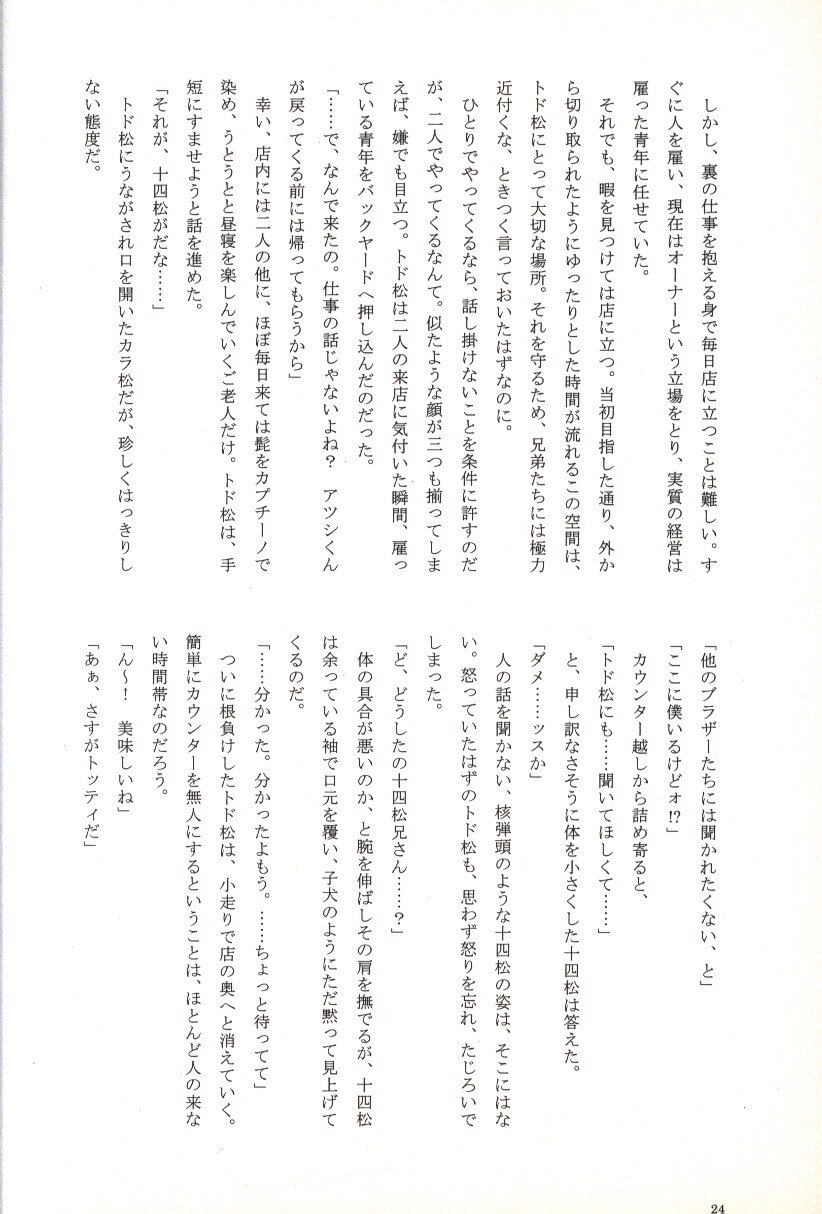 しかし、裏の仕事を抱える身で毎日店に立つことは難しい。す
ぐに人を雇い、現在はオーナーという立場をとり、実質の経営は
雇った青年に任せていた。
　それでも、暇を見つけては店に立つ。当初目指した通り、外か
ら切り取られたようにゆったりとした時間が流れるこの空間は、
トド松にとって大切な場所。それを守るため、兄弟たちには極力
近付くな、ときつく言っておいたはずなのに。
　ひとりでやってくるなら、話し掛けないことを条件に許すのだ
が、二人でやってくるなんて。似たような顔が三つも揃ってしま
えば、嫌でも目立つ。トド松は二人の来店に気付いた瞬間、雇っ
ている青年をバックヤードへ押し込んだのだった。
「……で、なんで来たの。仕事の話じゃないよね？　アツシくん
が戻ってくる前には帰ってもらうから」
　幸い、店内には二人の他に、ほぼ毎日来ては髭をカプチーノで
染め、うとうとと昼寝を楽しんでいくご老人だけ。トド松は、手
短にすませようと話を進めた。
「それが、十四松がだな……」
　トド松にうながされ口を開いたカラ松だが、珍しくはっきりし
ない態度だ。
「他のブラザーたちには聞かれたくない、と」
「ここに僕いるけどォ!?」
　カウンター越しから詰め寄ると、
「トド松にも……聞いてほしくて……」
　と、申し訳なさそうに体を小さくした十四松は答えた。
「ダメ……ッスか」
　人の話を聞かない、核弾頭のような十四松の姿は、そこにはな
い。怒っていたはずのトド松も、思わず怒りを忘れ、たじろいで
しまった。
「ど、どうしたの十四松兄さん……？」
　体の具合が悪いのか、と腕を伸ばしその肩を撫でるが、十四松
は余っている袖で口元を覆い、子犬のようにただ黙って見上げて
くるのだ。
「……分かった。分かったよもう。……ちょっと待ってて」
　ついに根負けしたトド松は、小走りで店の奥へと消えていく。
簡単にカウンターを無人にするということは、ほとんど人の来な
い時間帯なのだろう。
「ん～！　美味しいね」
「あぁ、さすがトッティだ」
24